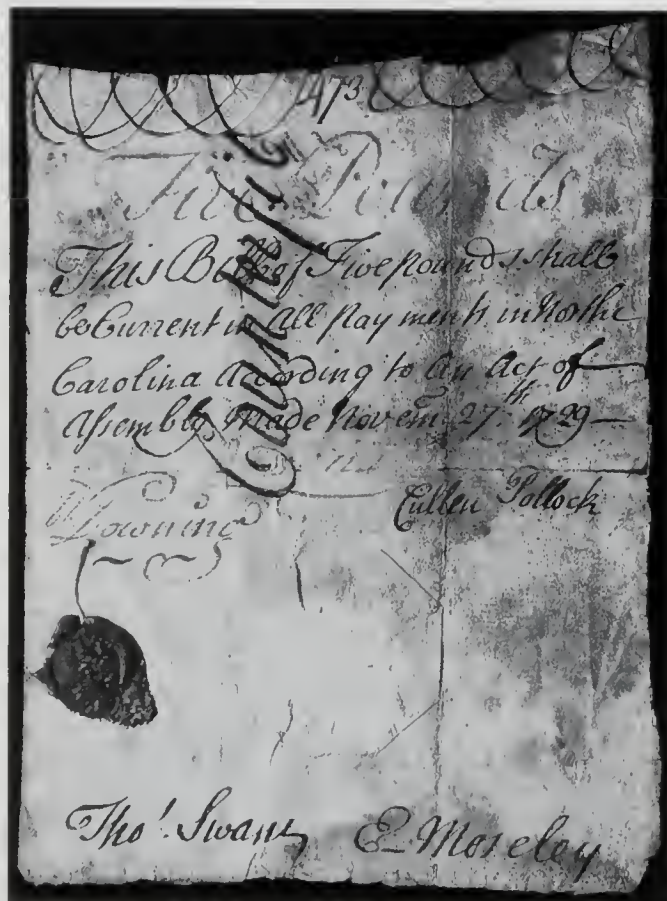 473
Five Pounds
This Bill of Five pounds shall
be Current in All Payments in North
Carolina According to an Act of
Assembly Made Novem 27.th 1729
W Downing
Cullen Pollock
Tho.s Swann
E Moseley